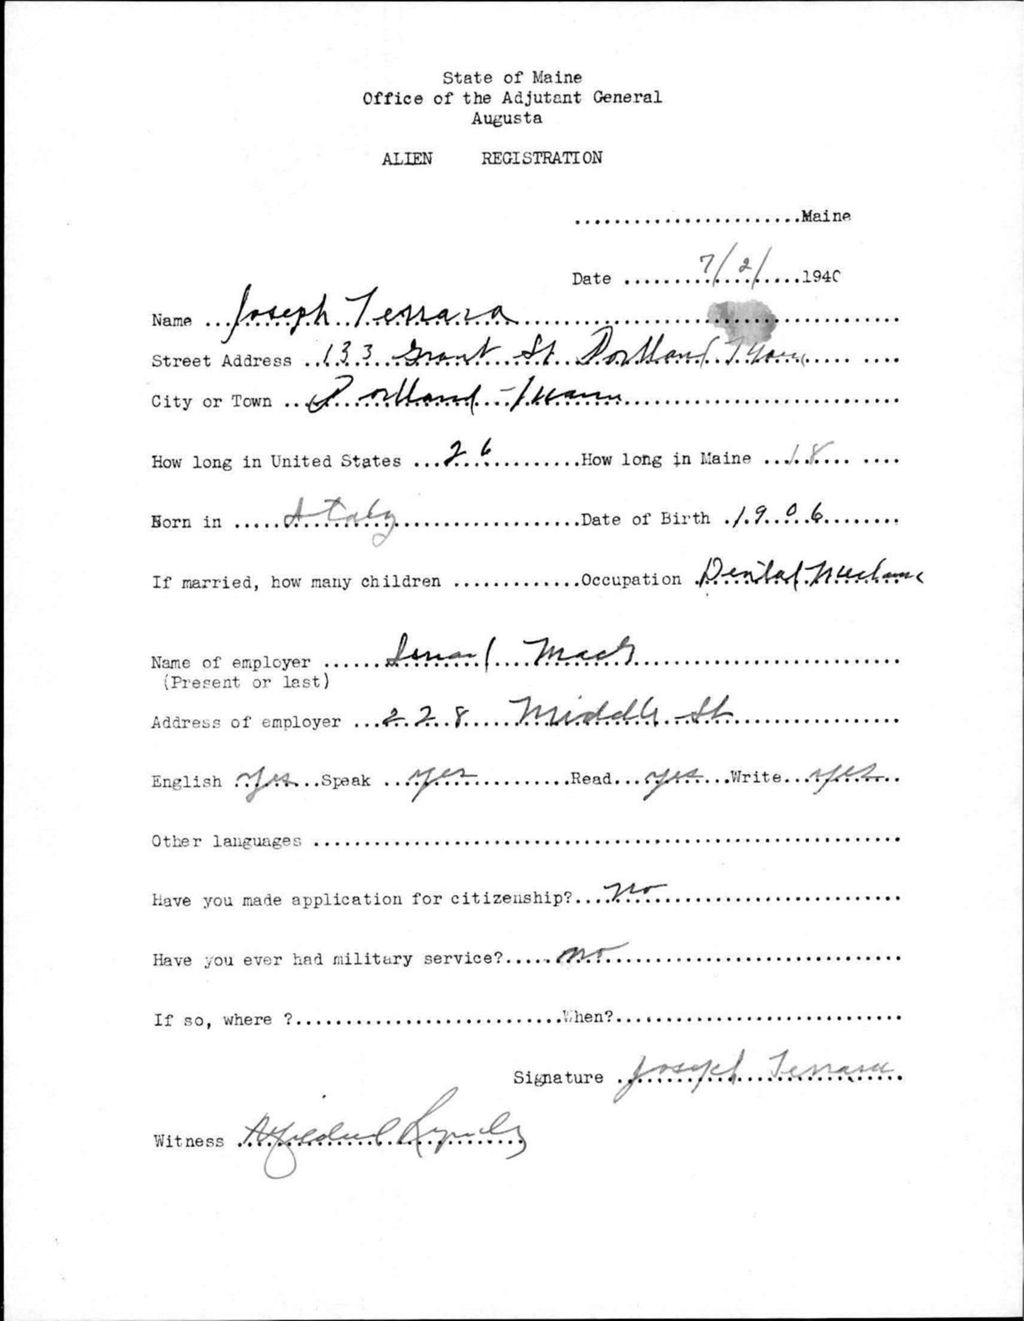 State of Maine
Office of the Adjutant General
Augusta
ALIEN REGISTRATION
.......................Maine
Date ........7/2/......1940
Name ...Joseph Terrara.......................................
Street Address ..133 Grant St. Portland..... ....
City or Town ...Portland -.............................
How long in United States ...26............How long in Maine ...18.... ....
Born in .....Italy......................Date of Birth .1906........
If married, how many children .............Occupation .Dental
Name of employer ...........................................
(Present or last)
Address of employer ...228 Middle St.................
English Yes...Speak ...yes..........Read...yes...Write...yes..
Other languages ...........................................................
Have you made application for citizenship?....No........................
Have you ever had military service?.....no..............................
If so, where ?...........................When?.............................
Signature .Joseph Terrara.
Witness ..............................